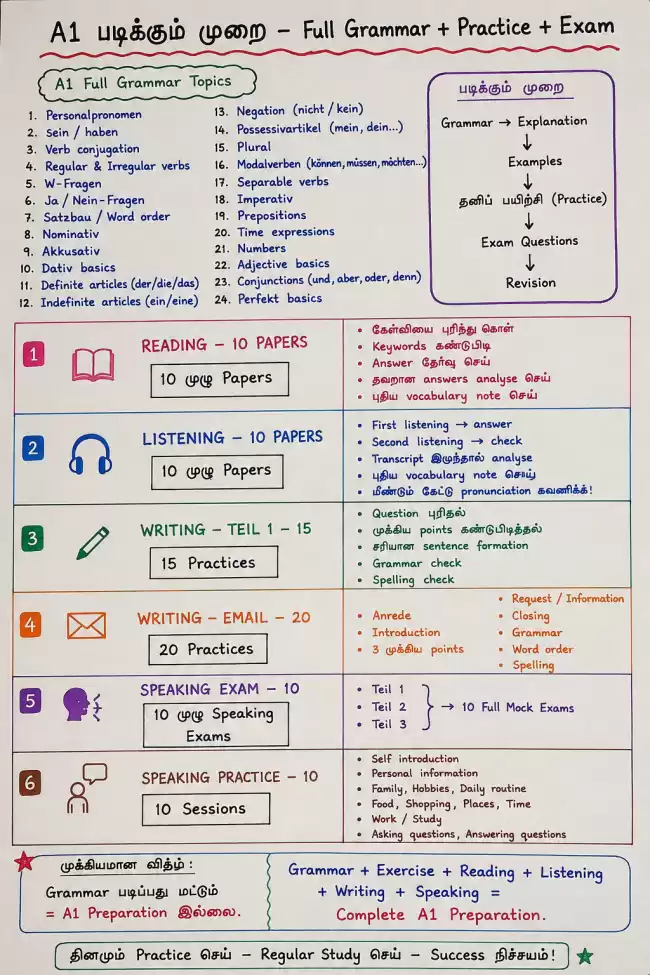 A1 படிக்கும் முறை – Full Grammar + Practice + Exam
A1 Full Grammar Topics
1. Personalpronomen
2. Sein / haben
3. Verb conjugation
4. Regular & Irregular verbs
5. W-Fragen
6. Ja / Nein-Fragen
7. Satzbau / Word order
8. Nominativ
9. Akkusativ
10. Dativ basics
11. Definite articles (der/die/das)
12. Indefinite articles (ein/eine)
13. Negation (nicht / kein)
14. Possessivartikel (mein, dein...)
15. Plural
16. Modalverben (können, müssen, möchten...)
17. Separable verbs
18. Imperativ
19. Prepositions
20. Time expressions
21. Numbers
22. Adjective basics
23. Conjunctions (und, aber, oder, denn)
24. Perfekt basics
படிக்கும் முறை
Grammar → Explanation
↓
Examples
↓
தனிப் பயிற்சி (Practice)
↓
Exam Questions
↓
Revision
1
READING – 10 PAPERS
10 முழு Papers
• கேள்வியை புரிந்து கொள்
• Keywords கண்டுபிடி
• Answer தேர்வு செய்
• தவறான answers analyse செய்
• புதிய vocabulary note செய்
2
LISTENING – 10 PAPERS
10 முழு Papers
• First listening → answer
• Second listening → check
• Transcript analyse
• புதிய vocabulary note
• மீண்டும் கேட்டு pronunciation
3
WRITING – TEIL 1 – 15
15 Practices
• Question புரிதல்
• முக்கிய points கண்டுபிடித்தல்
• சரியான sentence formation
• Grammar check
• Spelling check
4
WRITING – EMAIL – 20
20 Practices
• Anrede
• Introduction
• 3 முக்கிய points
• Request / Information
• Closing
• Grammar
• Word order
• Spelling
5
SPEAKING EXAM – 10
10 முழு Speaking
Exams
• Teil 1
• Teil 2
• Teil 3
→ 10 Full Mock Exams
6
SPEAKING PRACTICE – 10
10 Sessions
• Self introduction
• Personal information
• Family, Hobbies, Daily routine
• Food, Shopping, Places, Time
• Work / Study
• Asking questions, Answering questions
முக்கியமான :
Grammar படிப்பது மட்டும்
= A1 Preparation இல்லை.
Grammar + Exercise + Reading + Listening
+ Writing + Speaking =
Complete A1 Preparation.
தினமும் Practice செய் – Regular Study செய் – Success நிச்சயம்!